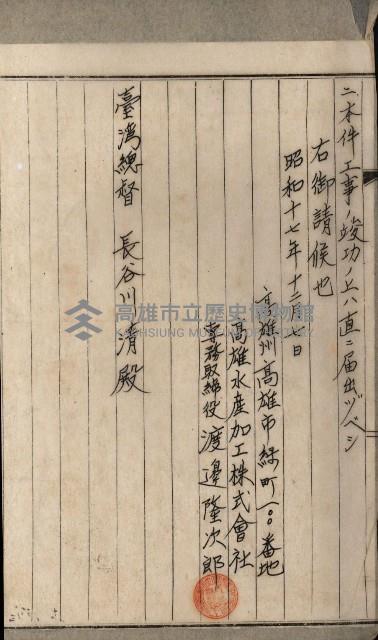 二、本件工事ノ竣功ノ上ハ直ニ届出ヅベシ
右御請候也
昭和十七年十二月 日
高雄州高雄市緑町一〇〇番地
高雄水産加工株式會社
専務取締役 渡邊隆次郎
臺灣總督 長谷川清殿
高雄市立歷史博物館
KAOHSIUNG MUSEUM OF HISTORY